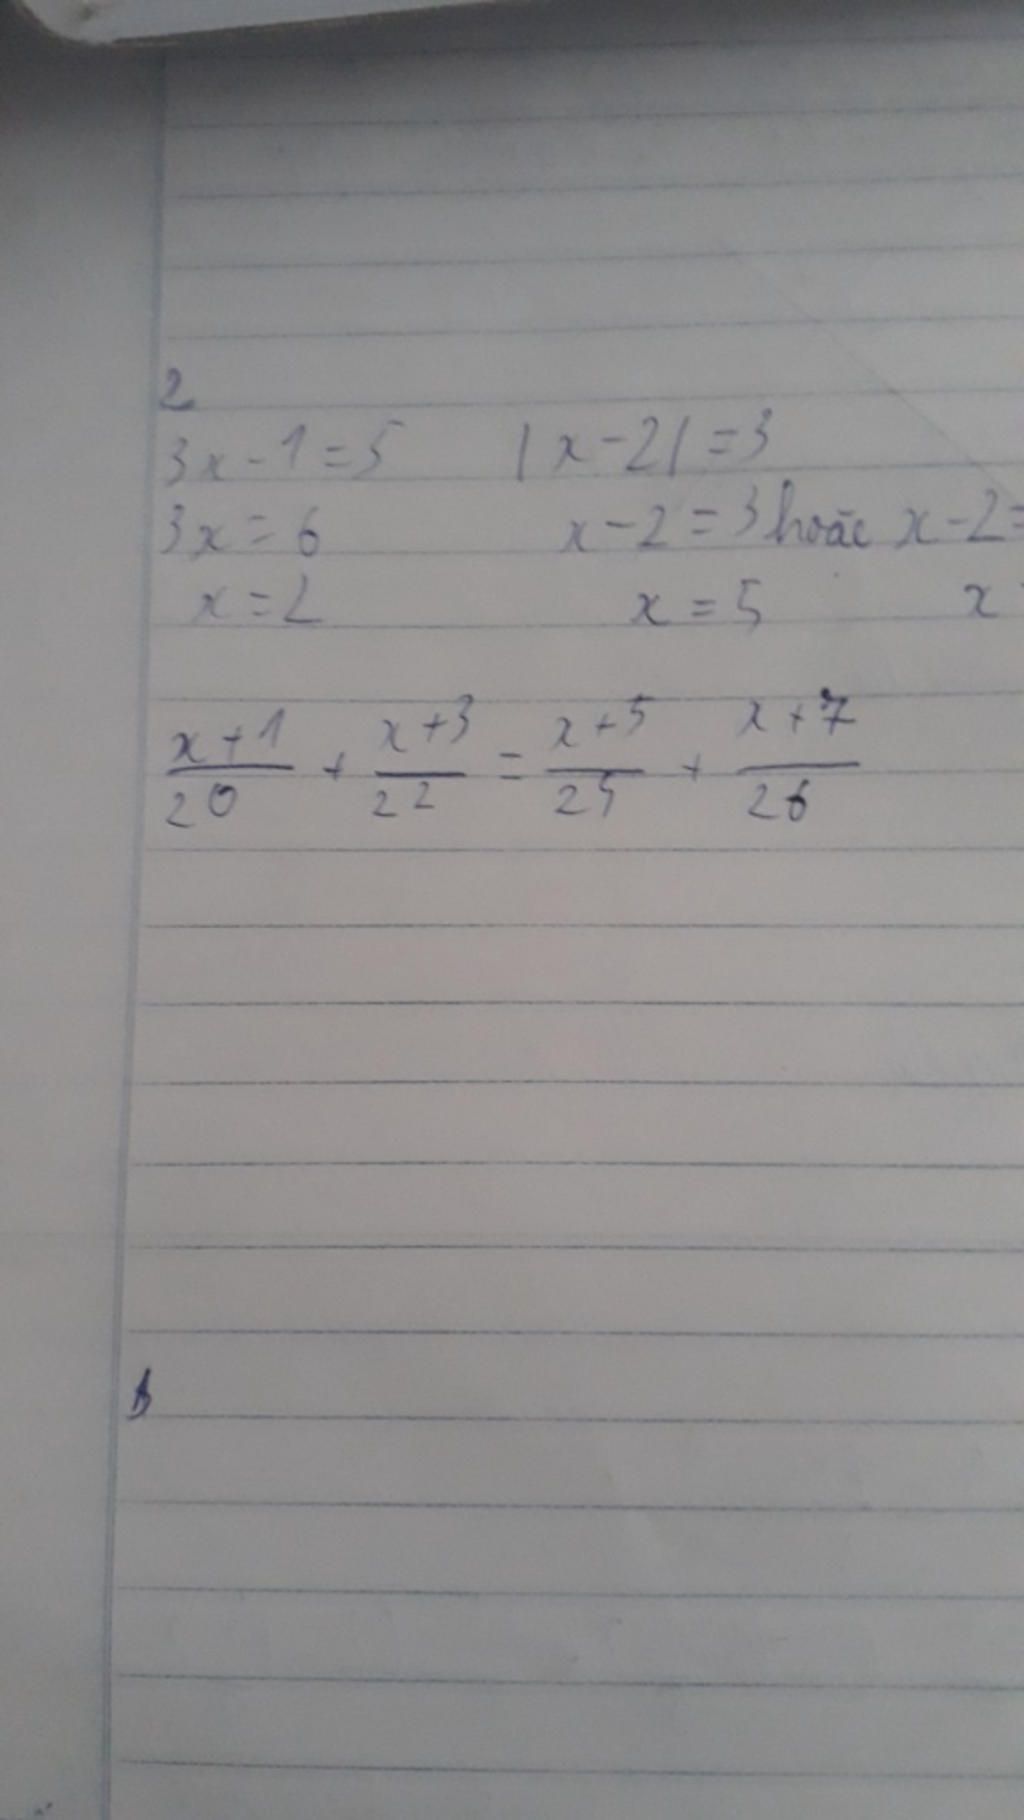 2
3x-1=5 |x-2|=3
3x=6 x-2=3 hoăc x-2=
x=2 x=5 x
x+1/20 + x+3/22 = x+5/24 + x+7/26